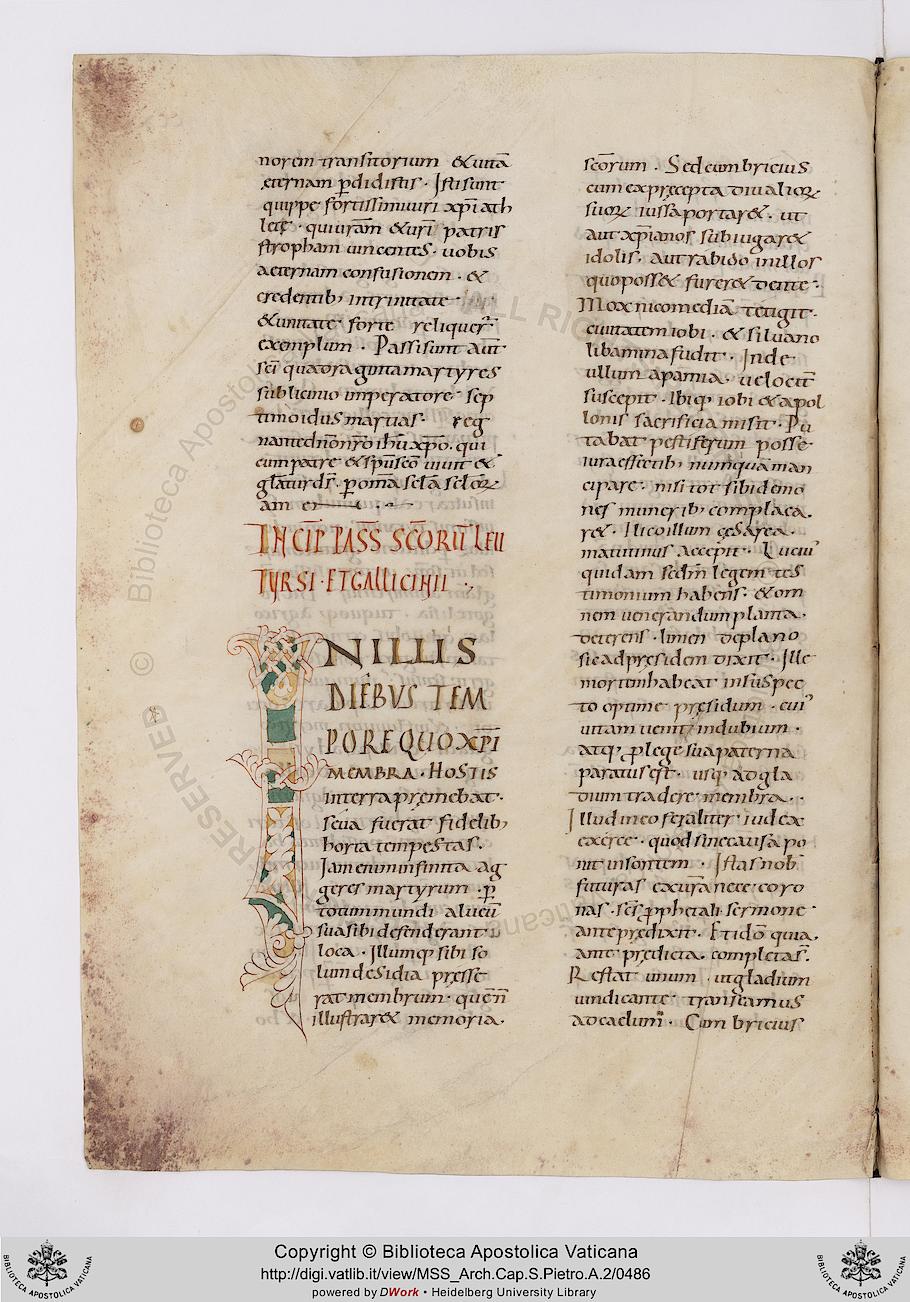 norem transitorium · & uitā
aeternam p̄didistis · Isti sunt
quippe fortissimi uiri xp̄i ath
letę · qui uiram̄ & ur̄i patris
stropham uincentes · uobis
aeternam confusionem · &
credentib; in trinitate
& unitate forte reliquer̄
exemplum · Passi sunt aut̄
sc̄i quadraginta martyres
sub licinio imperatore · sep
timo idus martias · reg
nante dn̄o nr̄o ih̄u xp̄o · qui
cum patre & sp̄u sc̄o uiuit &
gl̄atur d̄s · p̄ om̄a sc̄la sc̄loꝝ
am en
INCIP̄ PASS̄ SC̄ORŪ LEU
TYRSI · ET GALLICINII ·,
IN ILLIS
DIEBUS TEM
PORE QUO XP̄I
MEMBRA · HOSTIS
in terra premebat ·
seua fuerat fidelib;
horta tempestas ·
Iam enim infinita ag
geres martyrum · p̄
totum mundi alueū
sua sibi defenderant
loca · Illumq; sibi so
lum desidia presse
rat membrum · quem̄
illustrar& memoria ·
sc̄orum · Sed cum bricius
cum ex precepta diualioꝝ
suoꝝ iussa portar& · ut
aut xp̄ianos subiugar&
idolis, aut rabido in illos
quo poss& furer& dente ·
Mox nicomediā tetigit ·
ciuitatem iobi · & siluano
libamina fudit · Inde
ullum apamia · uelocit̄
suscepit · Ibiq; iobi & apol
lonis sacrificia misit · Pu
tabat pestiferum posse
iura effectib; numquā man
cipare · nisi tot sibi demo
nes munerib; complaca
r& · Ilico illum cęsarea ·
matutinus accepit · Luciu'
quidam sedm̄ legem tes
timonium habens · & om
nem uenerandum planta ·
deterens · limen de plano
sic ad presidem dixit · Ille
mortem habeat in suspec
to optime presidum · cui'
uitam uenit indubium ·
atq; p̄ lege sua paterna
paratus est · usq; ad gla
dium tradere membra ·
Illud in eo feraliter iudex
exerce · quod sine causa po
nit insontem · Istas nob̄
futuras ex cur̄a nece coro
nas · sc̄s p̄phetali sermone
ante predixit · Et idō quia,
ante predicta · completas̄.
Restat unum · ut gladium
uindicante transeamus
ad caelum · Cum bricius
Copyright © Biblioteca Apostolica Vaticana
http://digi.vatlib.it/view/MSS_Arch.Cap.S.Pietro.A.2/0486
powered by DWork • Heidelberg University Library